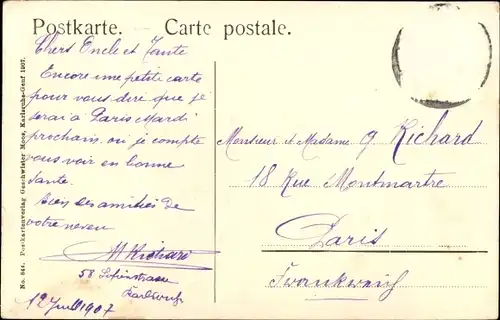 Postkarte. — Carte postale.
Chers Oncle et Tante
Encore une petite carte
pour vous dire que je
serai à Paris Mardi
prochain, où je compte
vous voir en bonne
santé.
Bien des amitiés de
votre neveu
M Richard
58 Sofienstrasse
Karlsruhe
12 Juill 1907
Monsieur et Madame G. Richard
18 Rue Montmartre
Paris
Frankreich
No. 848. Postkartenverlag Geschwister Moos, Karlsruhe-Genf 1907.